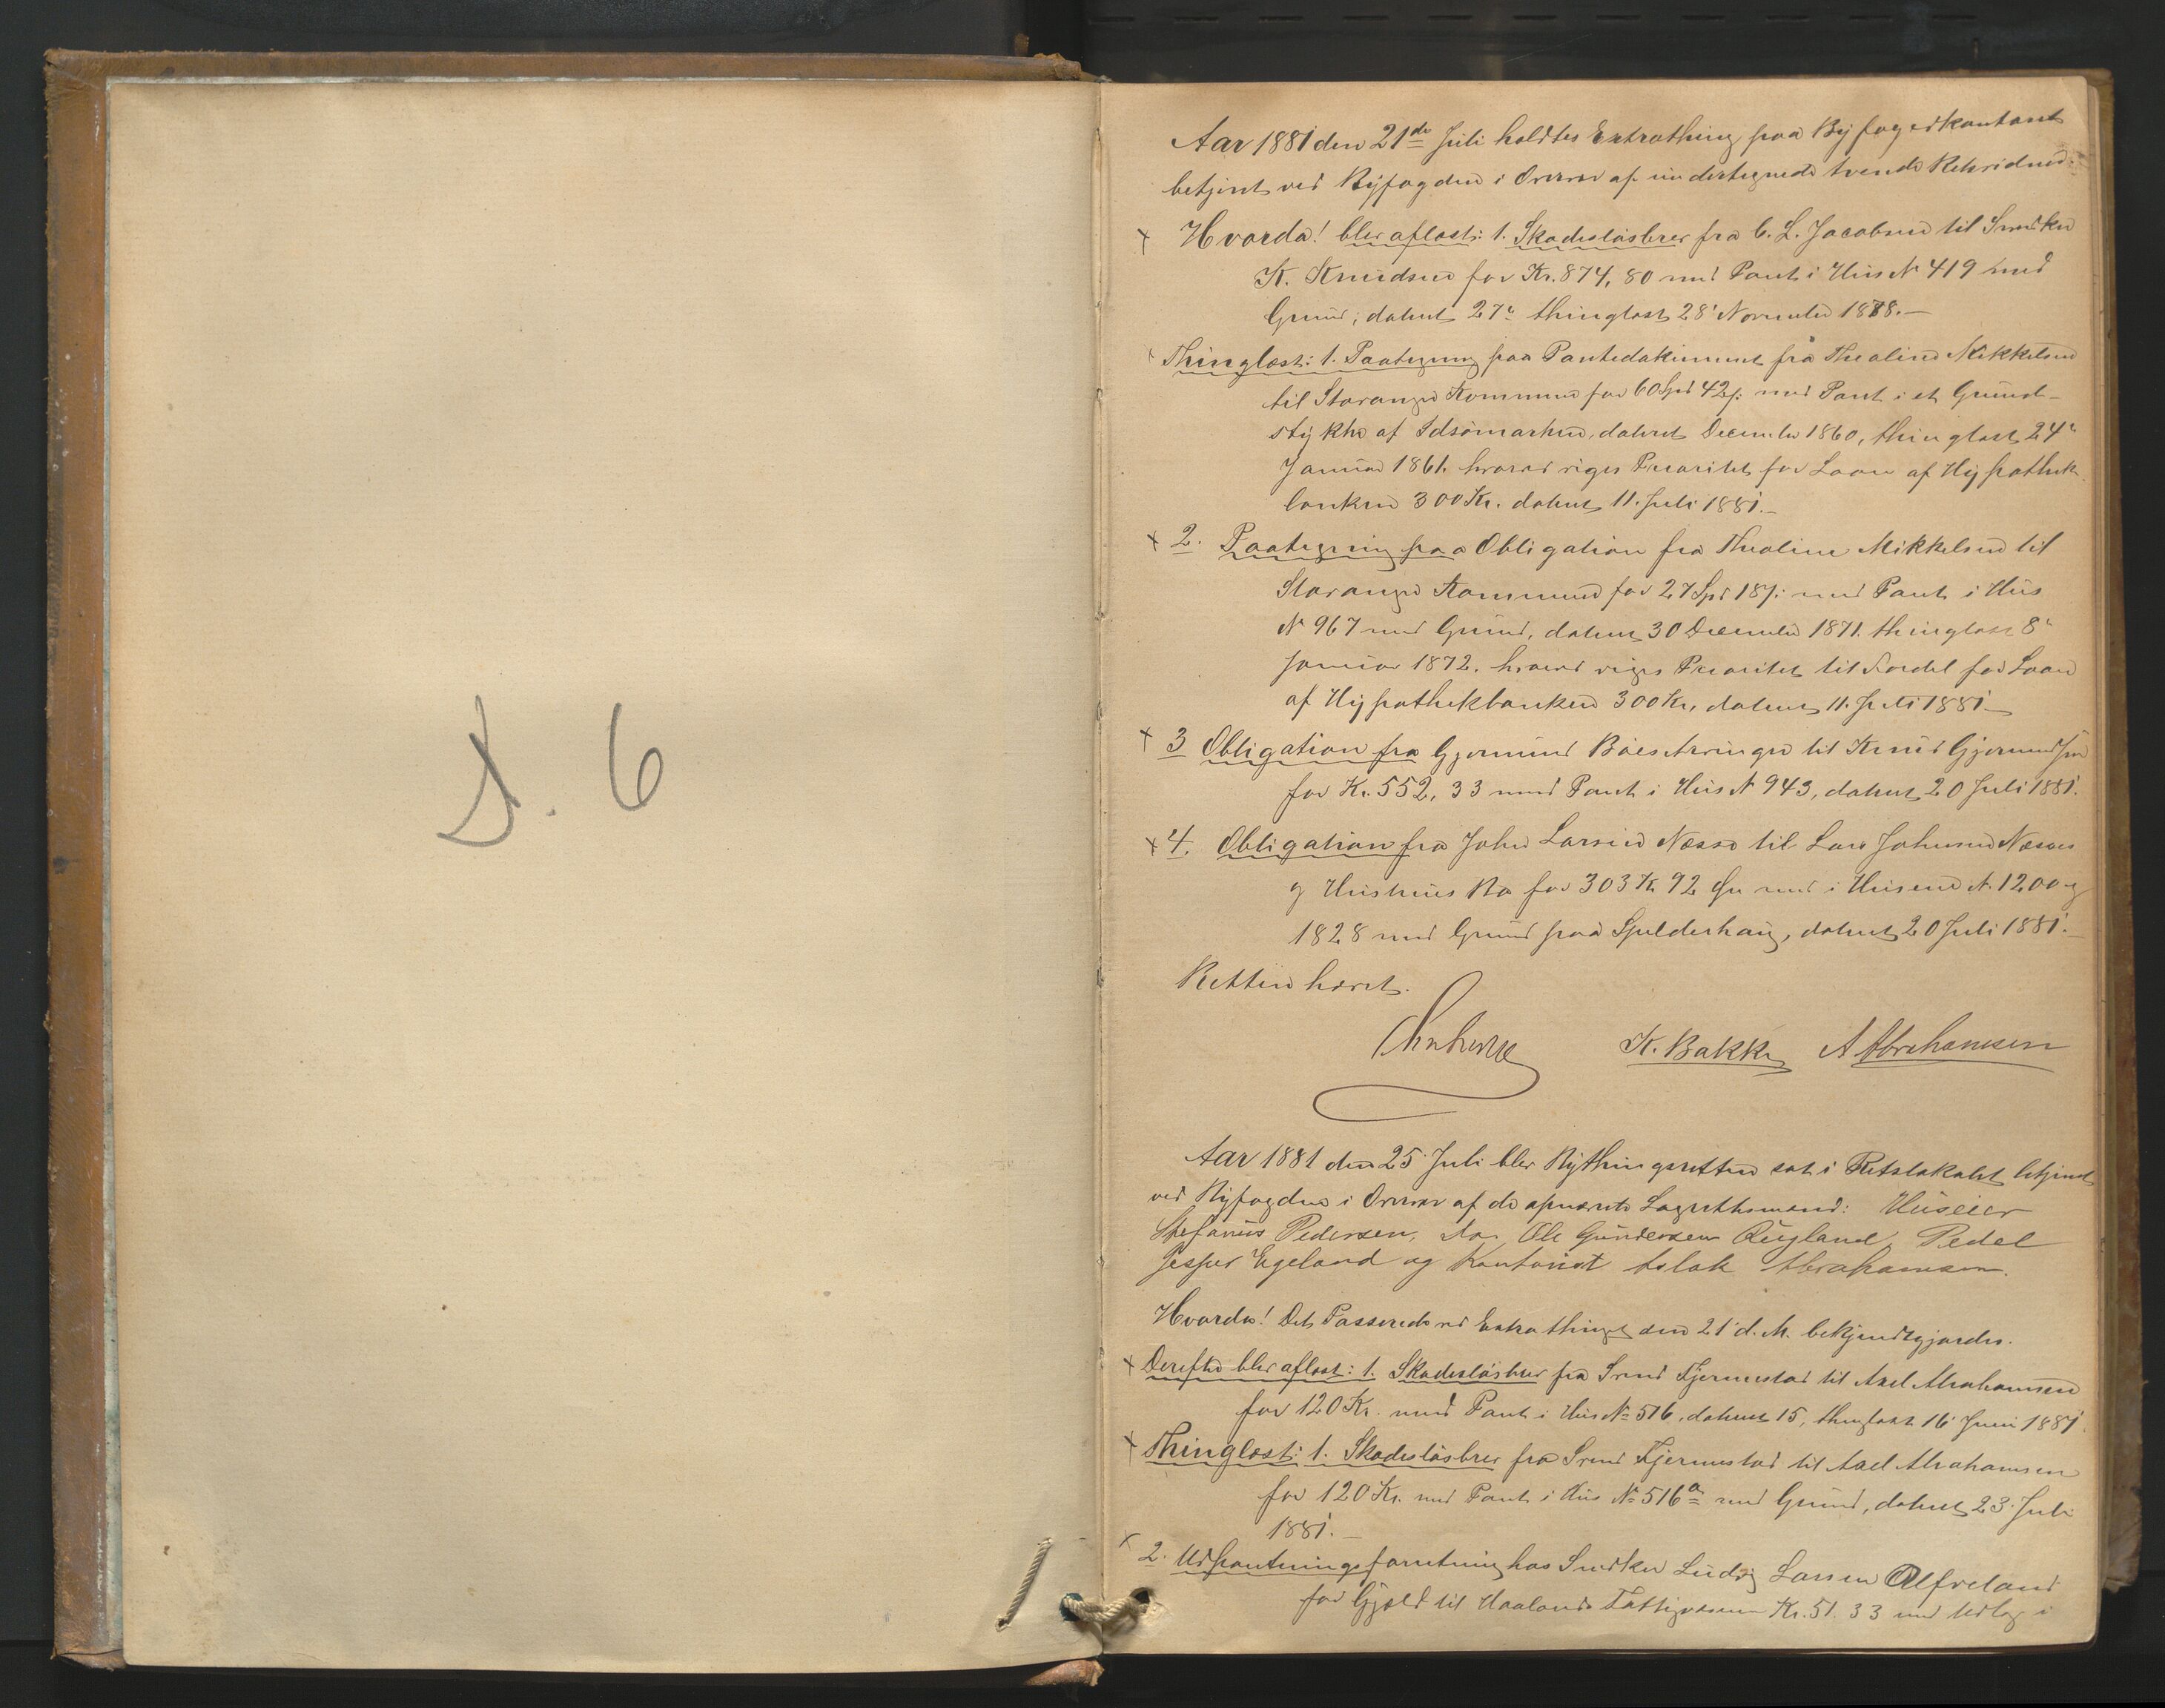 S. 6
Aar 1881 den 21de Juli holdtes Extrathing paa Byfogedkontoret
betjent ved Byfogden i Overvær af undertegnede tvende Retsvidner.
Hvorda! blev aflæst: 1. Skadesløsbrev fra C. L. Jacobsen til Snedker
K. Knudsen for Kr. 874,80 med Pant i Hus No 419 med
Grund, dateret 27de thinglæst 28' November 1878.—
Thinglæst: 1. Paategning paa Pantedokument fra Thealine Mikkelsen
til Stavanger Kommune for 60 Spd 42 s. med Pant i et Grund-
stykke af Idsömarken, dateret December 1860, thinglæst 24'
Januar 1861. hvorved viges Prioritet for Laan af Hypothek-
banken 300 Kr. dateret 11. Juli 1881.—
2. Paategning paa Obligation fra Thealine Mikkelsen til
Stavanger Kommune for 27 Spd 18 s. med Pant i Hus
No 967 med Grund, dateret 30 December 1871. thinglæst 8'
Januar 1872. hvorved viges Prioritet til Fordel for Laan
af Hypothekbanken 300 Kr. dateret 11. Juli 1881.—
3 Obligation fra Gjermund til Knud Gjermundsen
for Kr. 552,33 med Pant i Hus No 943, dateret 20 Juli 1881.
4. Obligation fra John Larsen Næsse til Lars Johnsen Næsses
og Hustrues Bo for 303 Kr 92 Øre med i Husene No 1200 og
1828 med Grund paa Spelderhaug, dateret 20 Juli 1881.—
Retten hævet.
K. Bakke A Abrahamsen
Aar 1881 den 25' Juli blev Bythingsretten sat i Retslokalet betjent
ved Byfogden i Overvær af de opnævnte Lagrettesmænd: Huseier
Stefanus Pedersen, do. Ole Gundersen Auglænd, Pedel
Jesper Egeland og Kontorist Aslak Abrahamsen.
Hvorda! Det Passerede ved Extrathinget den 21' d. M. bekjendtgjordes.
Derefter blev aflæst: 1. Skadesløsbrev fra Svend Tjermestad til Axel Abrahamsen
for 120 Kr. med Pant i Hus No 516, dateret 15, thinglæst 16' Juni 1881
Thinglæst: 1. Skadesløsbrev fra Svend Tjermestad til Axel Abrahamsen
for 120 Kr. med Pant i Hus No 516a med Grund, dateret 23. Juli
1881.—
2. Udpantningsforretning hos Snedker Ludvig Larsen
for Gjæld til Haalands Fattigvæsen Kr. 51.33 med Udlæg i